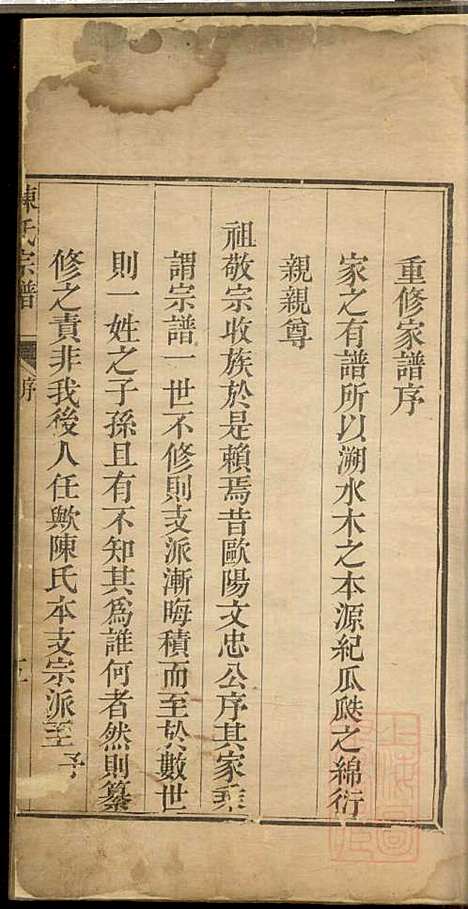 重修家譜序
家之有譜所以溯水木之本源紀瓜瓞之綿衍
親親尊
祖敬宗收族於是賴焉昔歐陽文忠公序其家乘
謂宗譜一世不修則支派漸晦積而至於數世
則一姓之子孫且有不知其為誰何者然則纂
修之責非我後人任歟陳氏本支宗派至予
陳氏宗譜
序